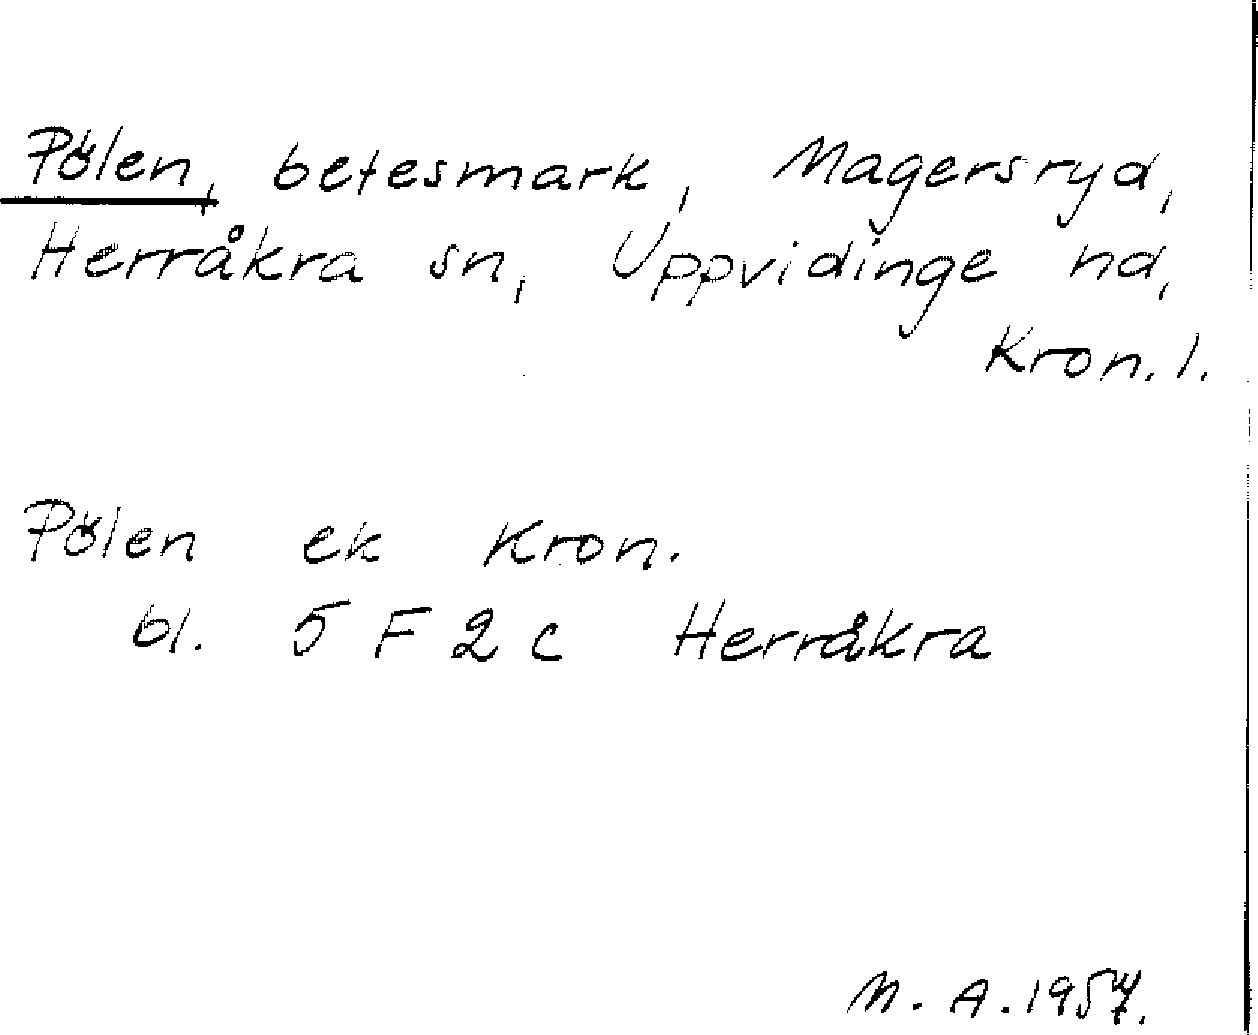 Pölen, betesmark, Magersryd,
Herråkra sn, Uppvidinge hd,
Kron. l.
Pölen ek Kron.
bl. 5 F 2 c Herråkra
M. A. 1957.